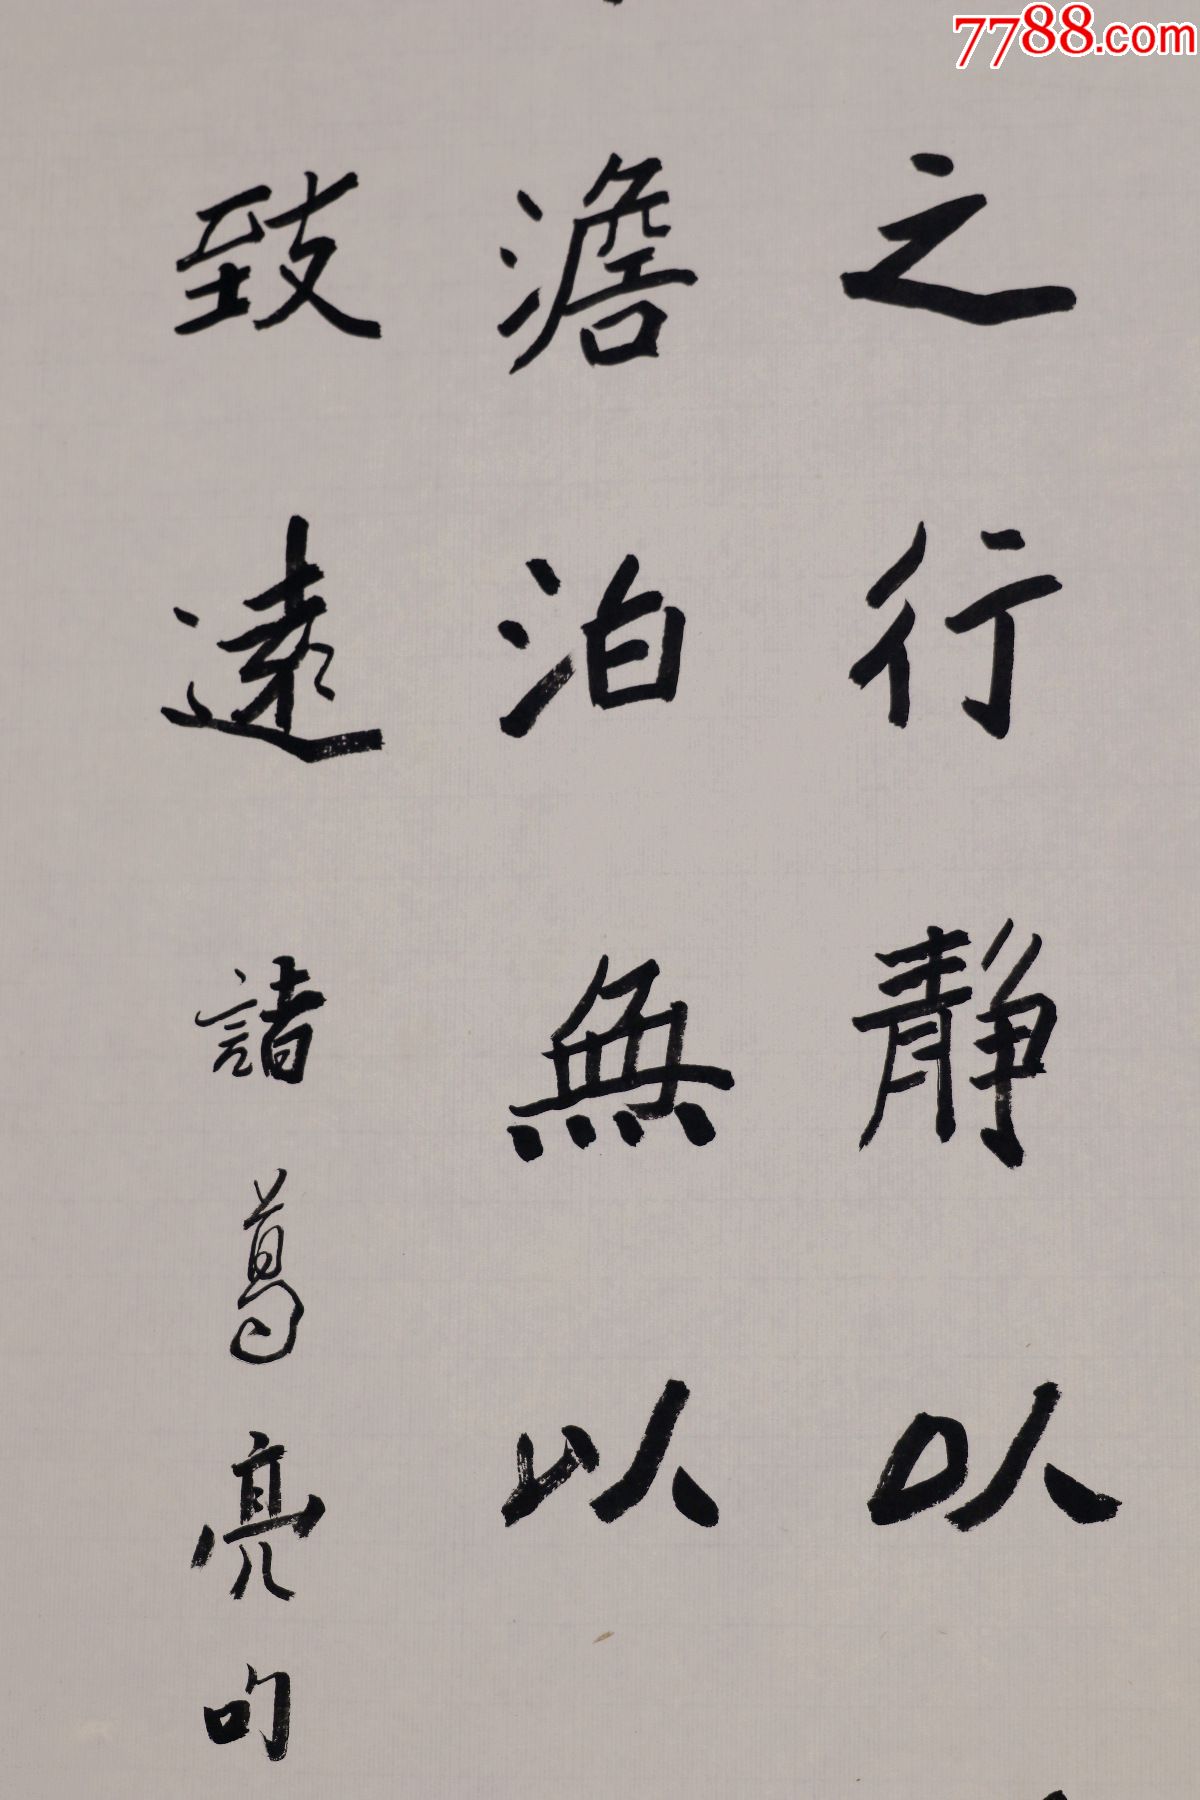 7788.com
之行静以
澹泊無以
致遠諸葛亮句